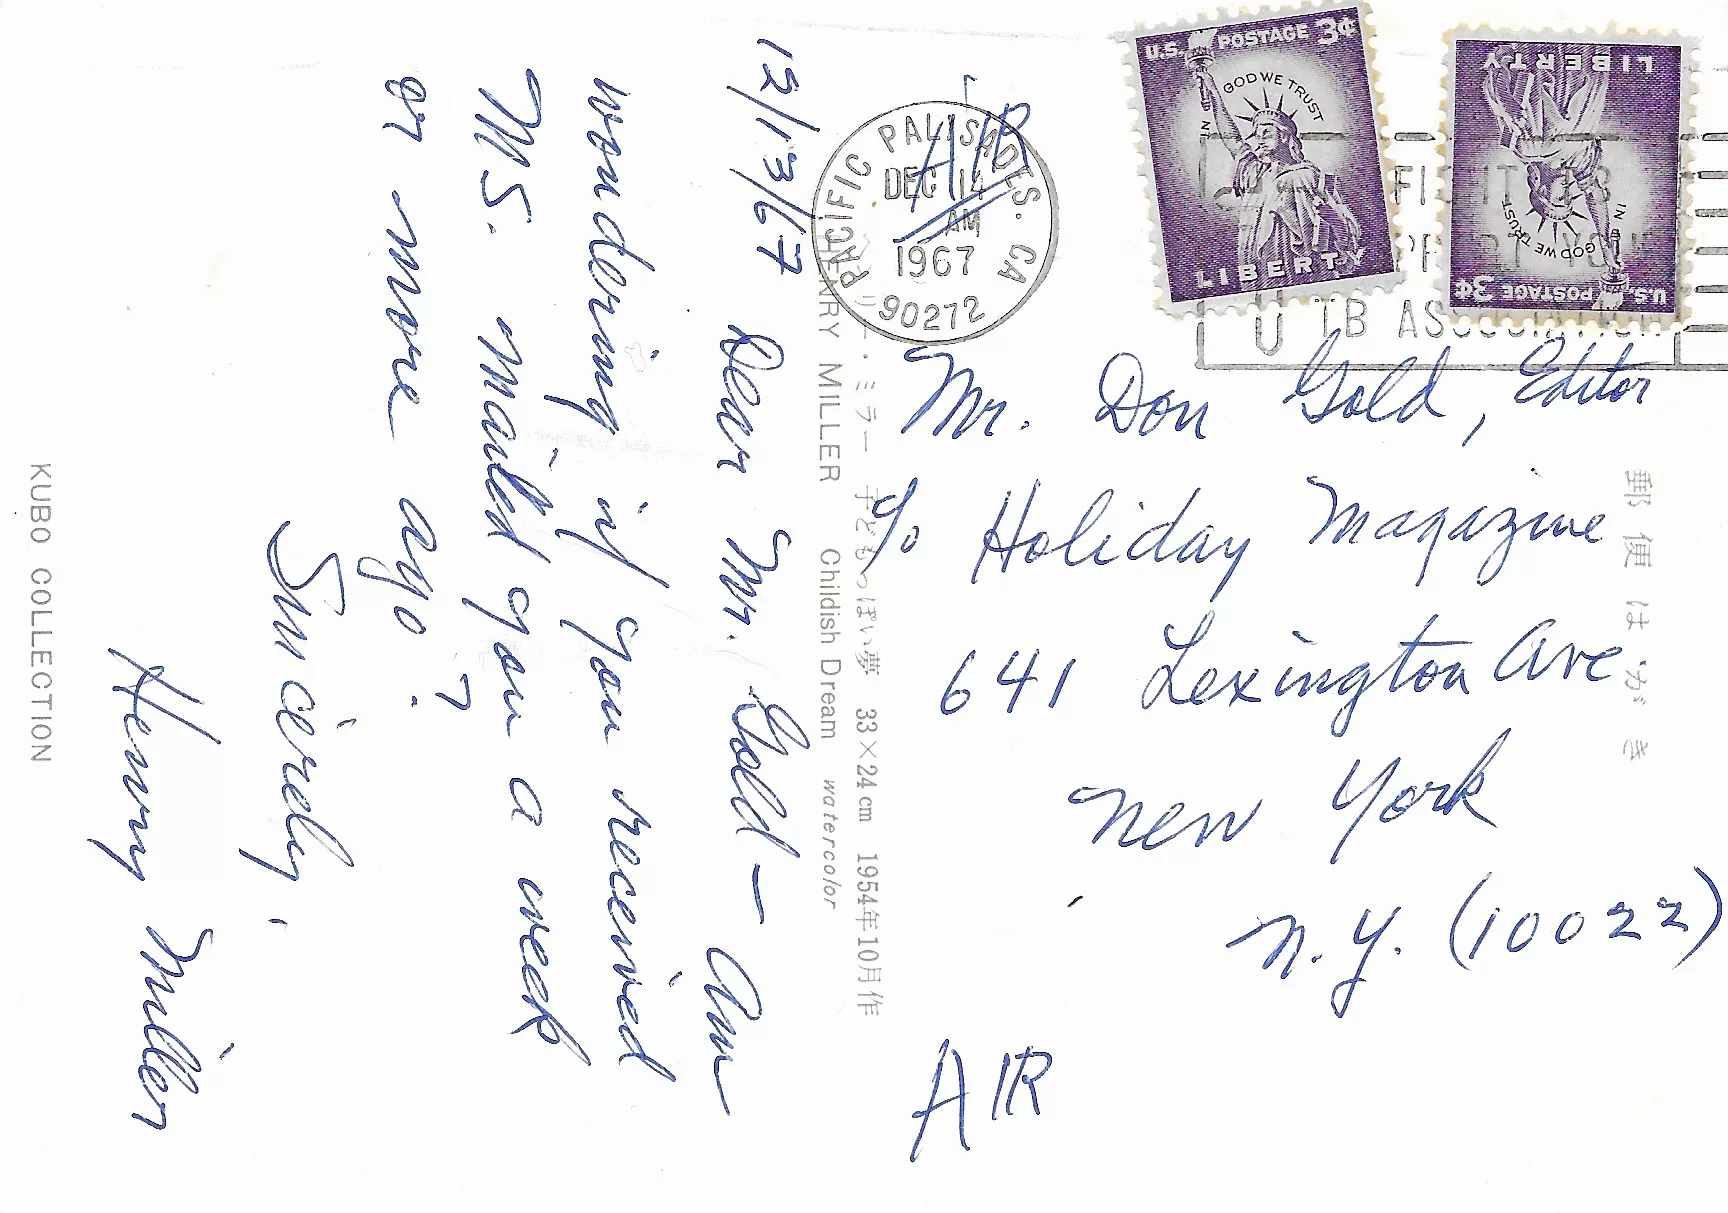 12/13/67 Dear Mr. Gold — Am
wondering if you received
MS. mailed you a week
or more ago?
Sincerely,
Henry Miller
KUBO COLLECTION
HENRY MILLER Childish Dream watercolor
リー・ミラー 子どもっぽい夢 33×24cm 1954年10月作
AIR
PACIFIC PALISADES. CA
DEC 14
AM
1967
90272
U.S. POSTAGE 3¢
IN GOD WE TRUST
LIBERTY
U.S. POSTAGE 3¢
IN GOD WE TRUST
LIBERTY
FIGHT TB
TB ASSOCIATION
Mr. Don Gold, Editor
c/o Holiday Magazine
641 Lexington Ave.
New York
N.Y. (10022)
AIR
郵便はがき